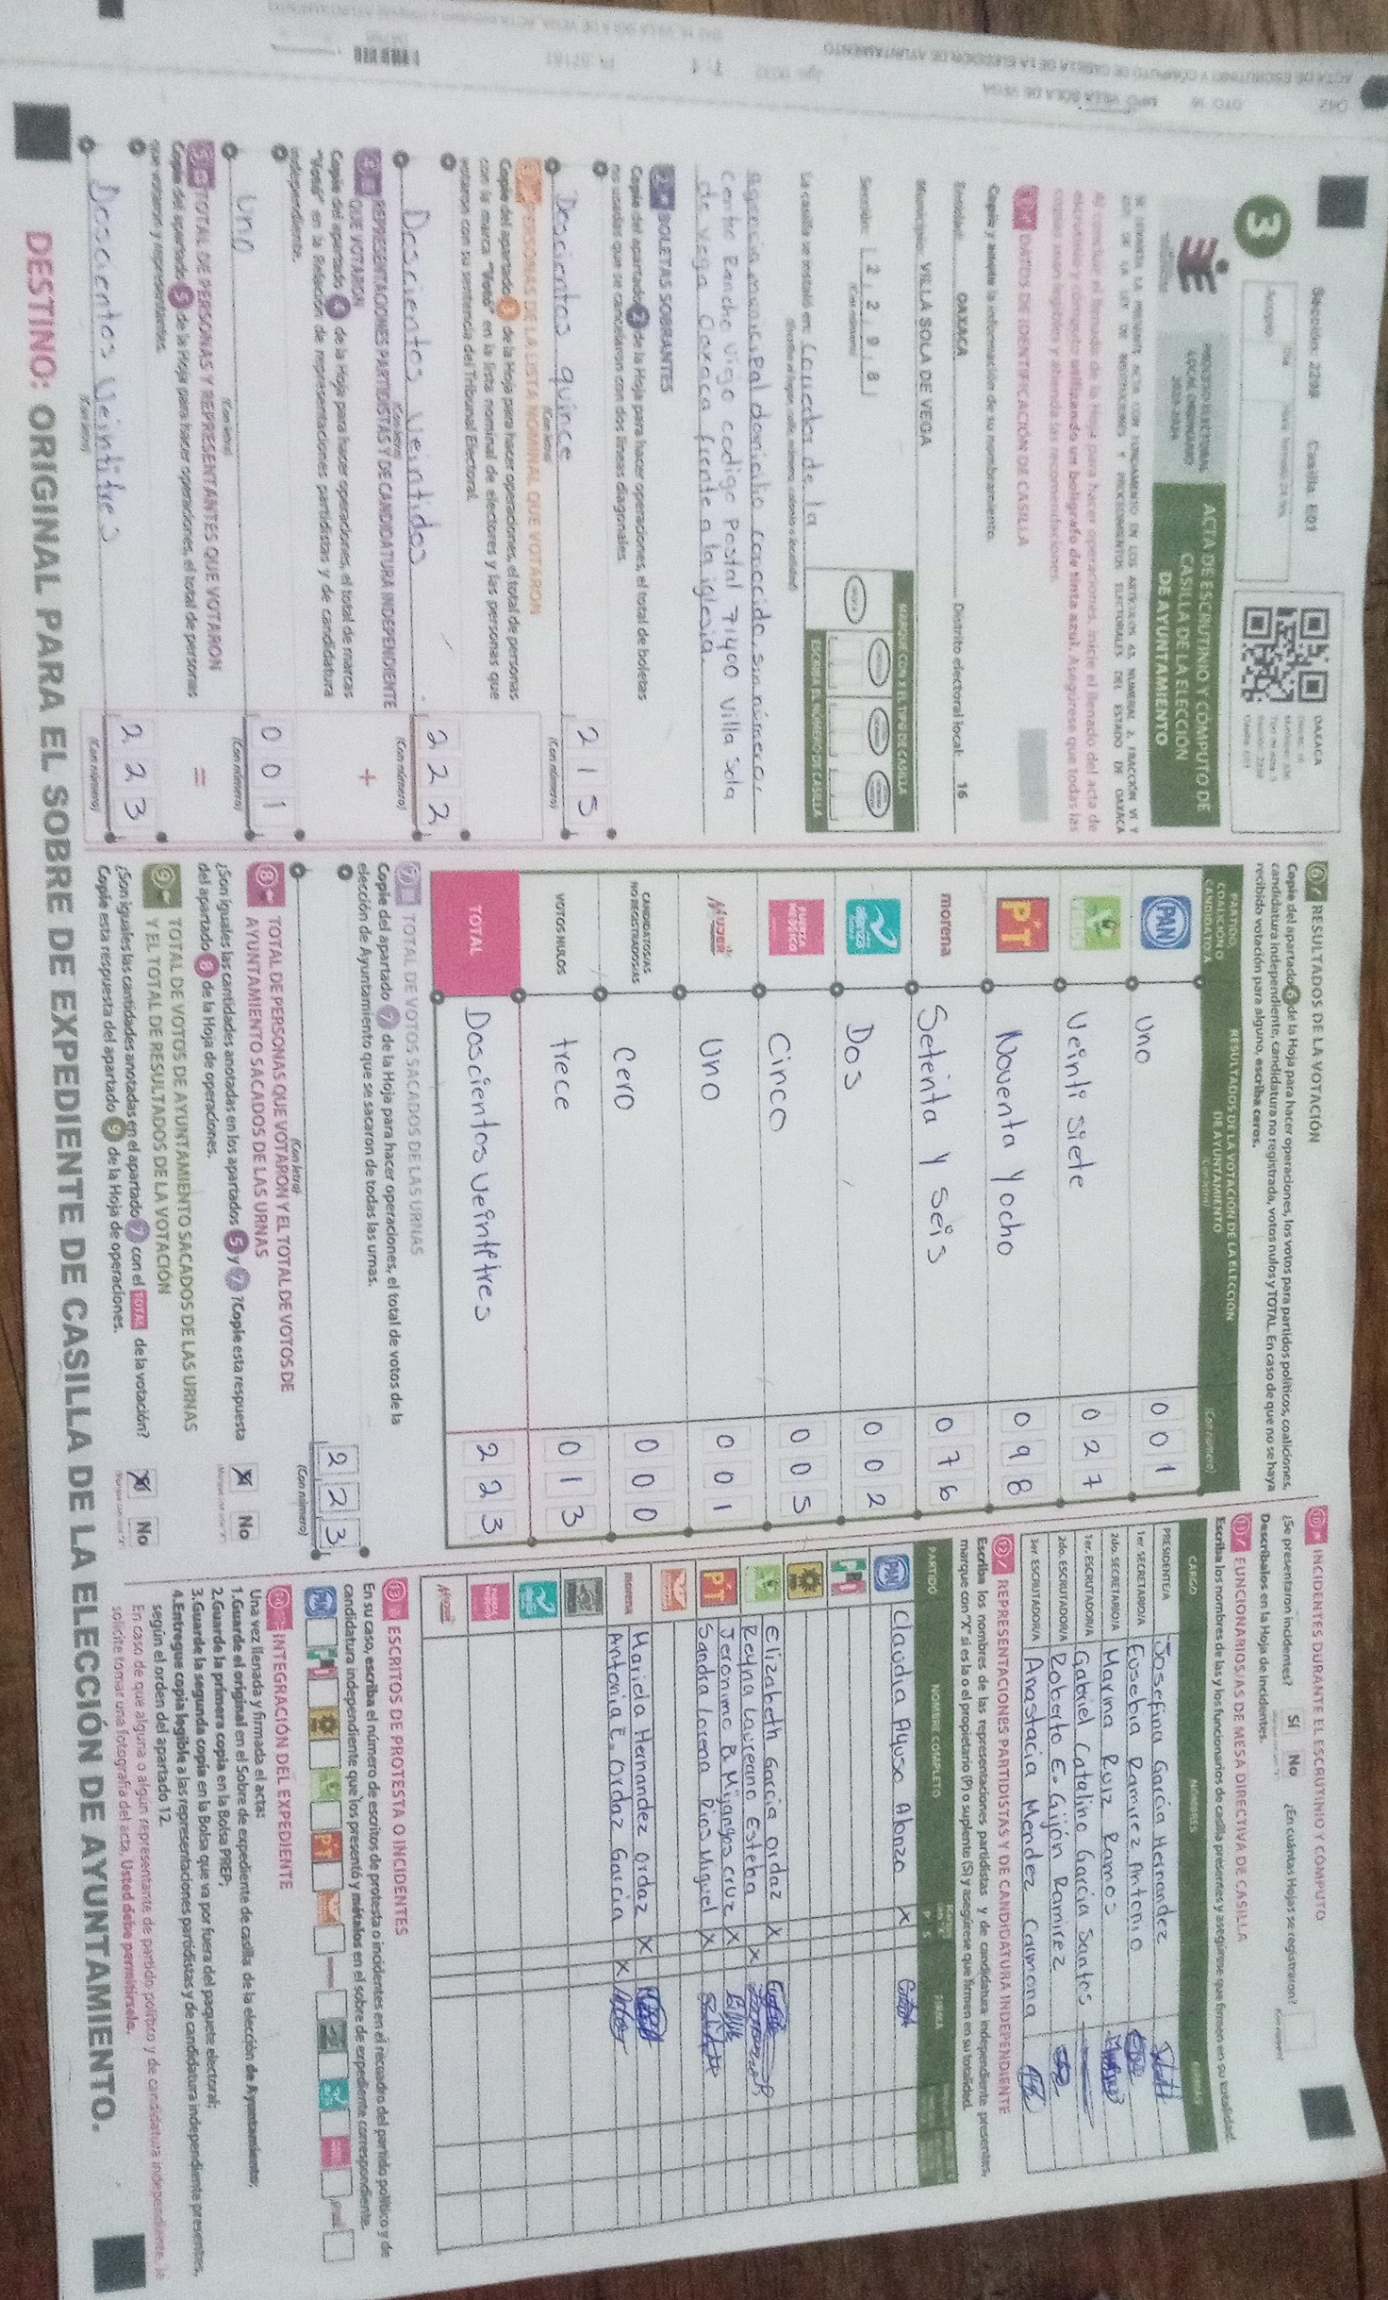 Sección: 2298 Casilla: E01
OAXACA
3
PROCESO ELECTORAL
LOCAL ORDINARIO
2023-2024
ACTA DE ESCRUTINIO Y CÓMPUTO DE
CASILLA DE LA ELECCIÓN
DE AYUNTAMIENTO
Al concluir el llenado de la Hoja para hacer operaciones, inicie el llenado del acta de
escrutinio y cómputo utilizando un bolígrafo de tinta azul. Asegúrese que todas las
copias sean legibles y atienda las recomendaciones.
1 DATOS DE IDENTIFICACIÓN DE CASILLA
Copie y anote la información de su nombramiento.
Entidad: OAXACA Distrito electoral local: 16
Municipio: VILLA SOLA DE VEGA
Sección: 2 2 9 8
(Con número)
MARQUE CON X EL TIPO DE CASILLA
ESCRIBA EL NÚMERO DE CASILLA
La casilla se instaló en: Corredor de la
agencia municipal domicilio conocido, sin número,
centro Rancho viejo codigo Postal 71400 villa Sola
de vega Oaxaca frente a la iglesia.
2 BOLETAS SOBRANTES
Copie del apartado 2 de la Hoja para hacer operaciones, el total de boletas
no usadas que se cancelaron con dos líneas diagonales.
Doscientos quince 2 1 5
(Con letra) (Con número)
3 PERSONAS DE LA LISTA NOMINAL QUE VOTARON
Copie del apartado 3 de la Hoja para hacer operaciones, el total de personas
con la marca "Votó" en la lista nominal de electores y las personas que
votaron con su sentencia del Tribunal Electoral.
Doscientos Veintidos 2 2 2
(Con letra) (Con número)
4 REPRESENTACIONES PARTIDISTAS Y DE CANDIDATURA INDEPENDIENTE
QUE VOTARON
+
Copie del apartado 4 de la Hoja para hacer operaciones, el total de marcas
"Votó" en la Relación de representaciones partidistas y de candidatura
independiente.
Uno 0 0 1
(Con letra) (Con número)
5 TOTAL DE PERSONAS Y REPRESENTANTES QUE VOTARON
=
Copie del apartado 5 de la Hoja para hacer operaciones, el total de personas
que votaron y representantes.
Doscientos Veintitres 2 2 3
(Con letra) (Con número)
6 RESULTADOS DE LA VOTACIÓN
Copie del apartado 6 de la Hoja para hacer operaciones, los votos para partidos políticos, coaliciones,
candidatura independiente, candidatura no registrada, votos nulos y TOTAL. En caso de que no se haya
recibido votación para alguno, escriba ceros.
PARTIDO, COALICIÓN O CANDIDATO/A
RESULTADOS DE LA VOTACIÓN DE LA ELECCIÓN DE AYUNTAMIENTO
(Con letra) (Con número)
PAN Uno 0 0 1
Veinti siete 0 2 7
PT Noventa y ocho 0 9 8
morena Setenta y seis 0 7 6
Dos 0 0 2
FUERZA MÉXICO Cinco 0 0 5
MUJER Uno 0 0 1
CANDIDATOS/AS NO REGISTRADOS/AS cero 0 0 0
VOTOS NULOS trece 0 1 3
TOTAL Doscientos Veintitres 2 2 3
7 TOTAL DE VOTOS SACADOS DE LAS URNAS
Copie del apartado 7 de la Hoja para hacer operaciones, el total de votos de la
elección de Ayuntamiento que se sacaron de todas las urnas.
2 2 3
(Con letra) (Con número)
8 TOTAL DE PERSONAS QUE VOTARON Y EL TOTAL DE VOTOS DE
AYUNTAMIENTO SACADOS DE LAS URNAS
¿Son iguales las cantidades anotadas en los apartados 5 y 7? Copie esta respuesta
del apartado 8 de la Hoja de operaciones.
X No
9 TOTAL DE VOTOS DE AYUNTAMIENTO SACADOS DE LAS URNAS
Y EL TOTAL DE RESULTADOS DE LA VOTACIÓN
¿Son iguales las cantidades anotadas en el apartado 7 con el TOTAL de la votación?
Copie esta respuesta del apartado 9 de la Hoja de operaciones.
X No
10 INCIDENTES DURANTE EL ESCRUTINIO Y CÓMPUTO
¿Se presentaron incidentes? Sí No ¿En cuántas Hojas se registraron?
Descríbalos en la Hoja de incidentes.
11 FUNCIONARIOS/AS DE MESA DIRECTIVA DE CASILLA
Escriba los nombres de las y los funcionarios de casilla presentes y asegúrese que firmen en su totalidad.
CARGO NOMBRES FIRMAS
PRESIDENTE/A Josefina García Hernandez
1er. SECRETARIO/A Eusebia Ramirez Antonio
2do. SECRETARIO/A Marina Ruiz Ramos
1er. ESCRUTADOR/A Gabriel Catalino Garcia Santos
2do. ESCRUTADOR/A Roberto E. Gijón Ramirez
3er. ESCRUTADOR/A Anastacia Mendez Carmona
12 REPRESENTACIONES PARTIDISTAS Y DE CANDIDATURA INDEPENDIENTE
Escriba los nombres de las representaciones partidistas y de candidatura independiente presentes,
marque con "X" si es la o el propietario (P) o suplente (S) y asegúrese que firmen en su totalidad.
PARTIDO NOMBRE COMPLETO P S FIRMA
PAN Claudia Ayuso Alonzo X
Elizabeth García Ordaz X
Reyna Laureano Esteba X
PT Jeronimo P. Mijangos Cruz X
Sandra Lorena Rios Miguel X
morena Mariela Hernandez Ordaz X
Antonia E. Ordaz Garcia X
13 ESCRITOS DE PROTESTA O INCIDENTES
En su caso, escriba el número de escritos de protesta o incidentes en el recuadro del partido político y de
candidatura independiente que los presentó y métalos en el sobre de expediente correspondiente.
14 INTEGRACIÓN DEL EXPEDIENTE
Una vez llenada y firmada el acta:
1.Guarde el original en el Sobre de expediente de casilla de la elección de Ayuntamiento;
2.Guarde la primera copia en la Bolsa PREP;
3.Guarde la segunda copia en la Bolsa que va por fuera del paquete electoral;
4.Entregue copia legible a las representaciones partidistas y de candidatura independiente presentes,
según el orden del apartado 12.
En caso de que alguna o algún representante de partido político y de candidatura independiente, le
solicite tomar una fotografía del acta, Usted debe permitírselo.
DESTINO: ORIGINAL PARA EL SOBRE DE EXPEDIENTE DE CASILLA DE LA ELECCIÓN DE AYUNTAMIENTO.